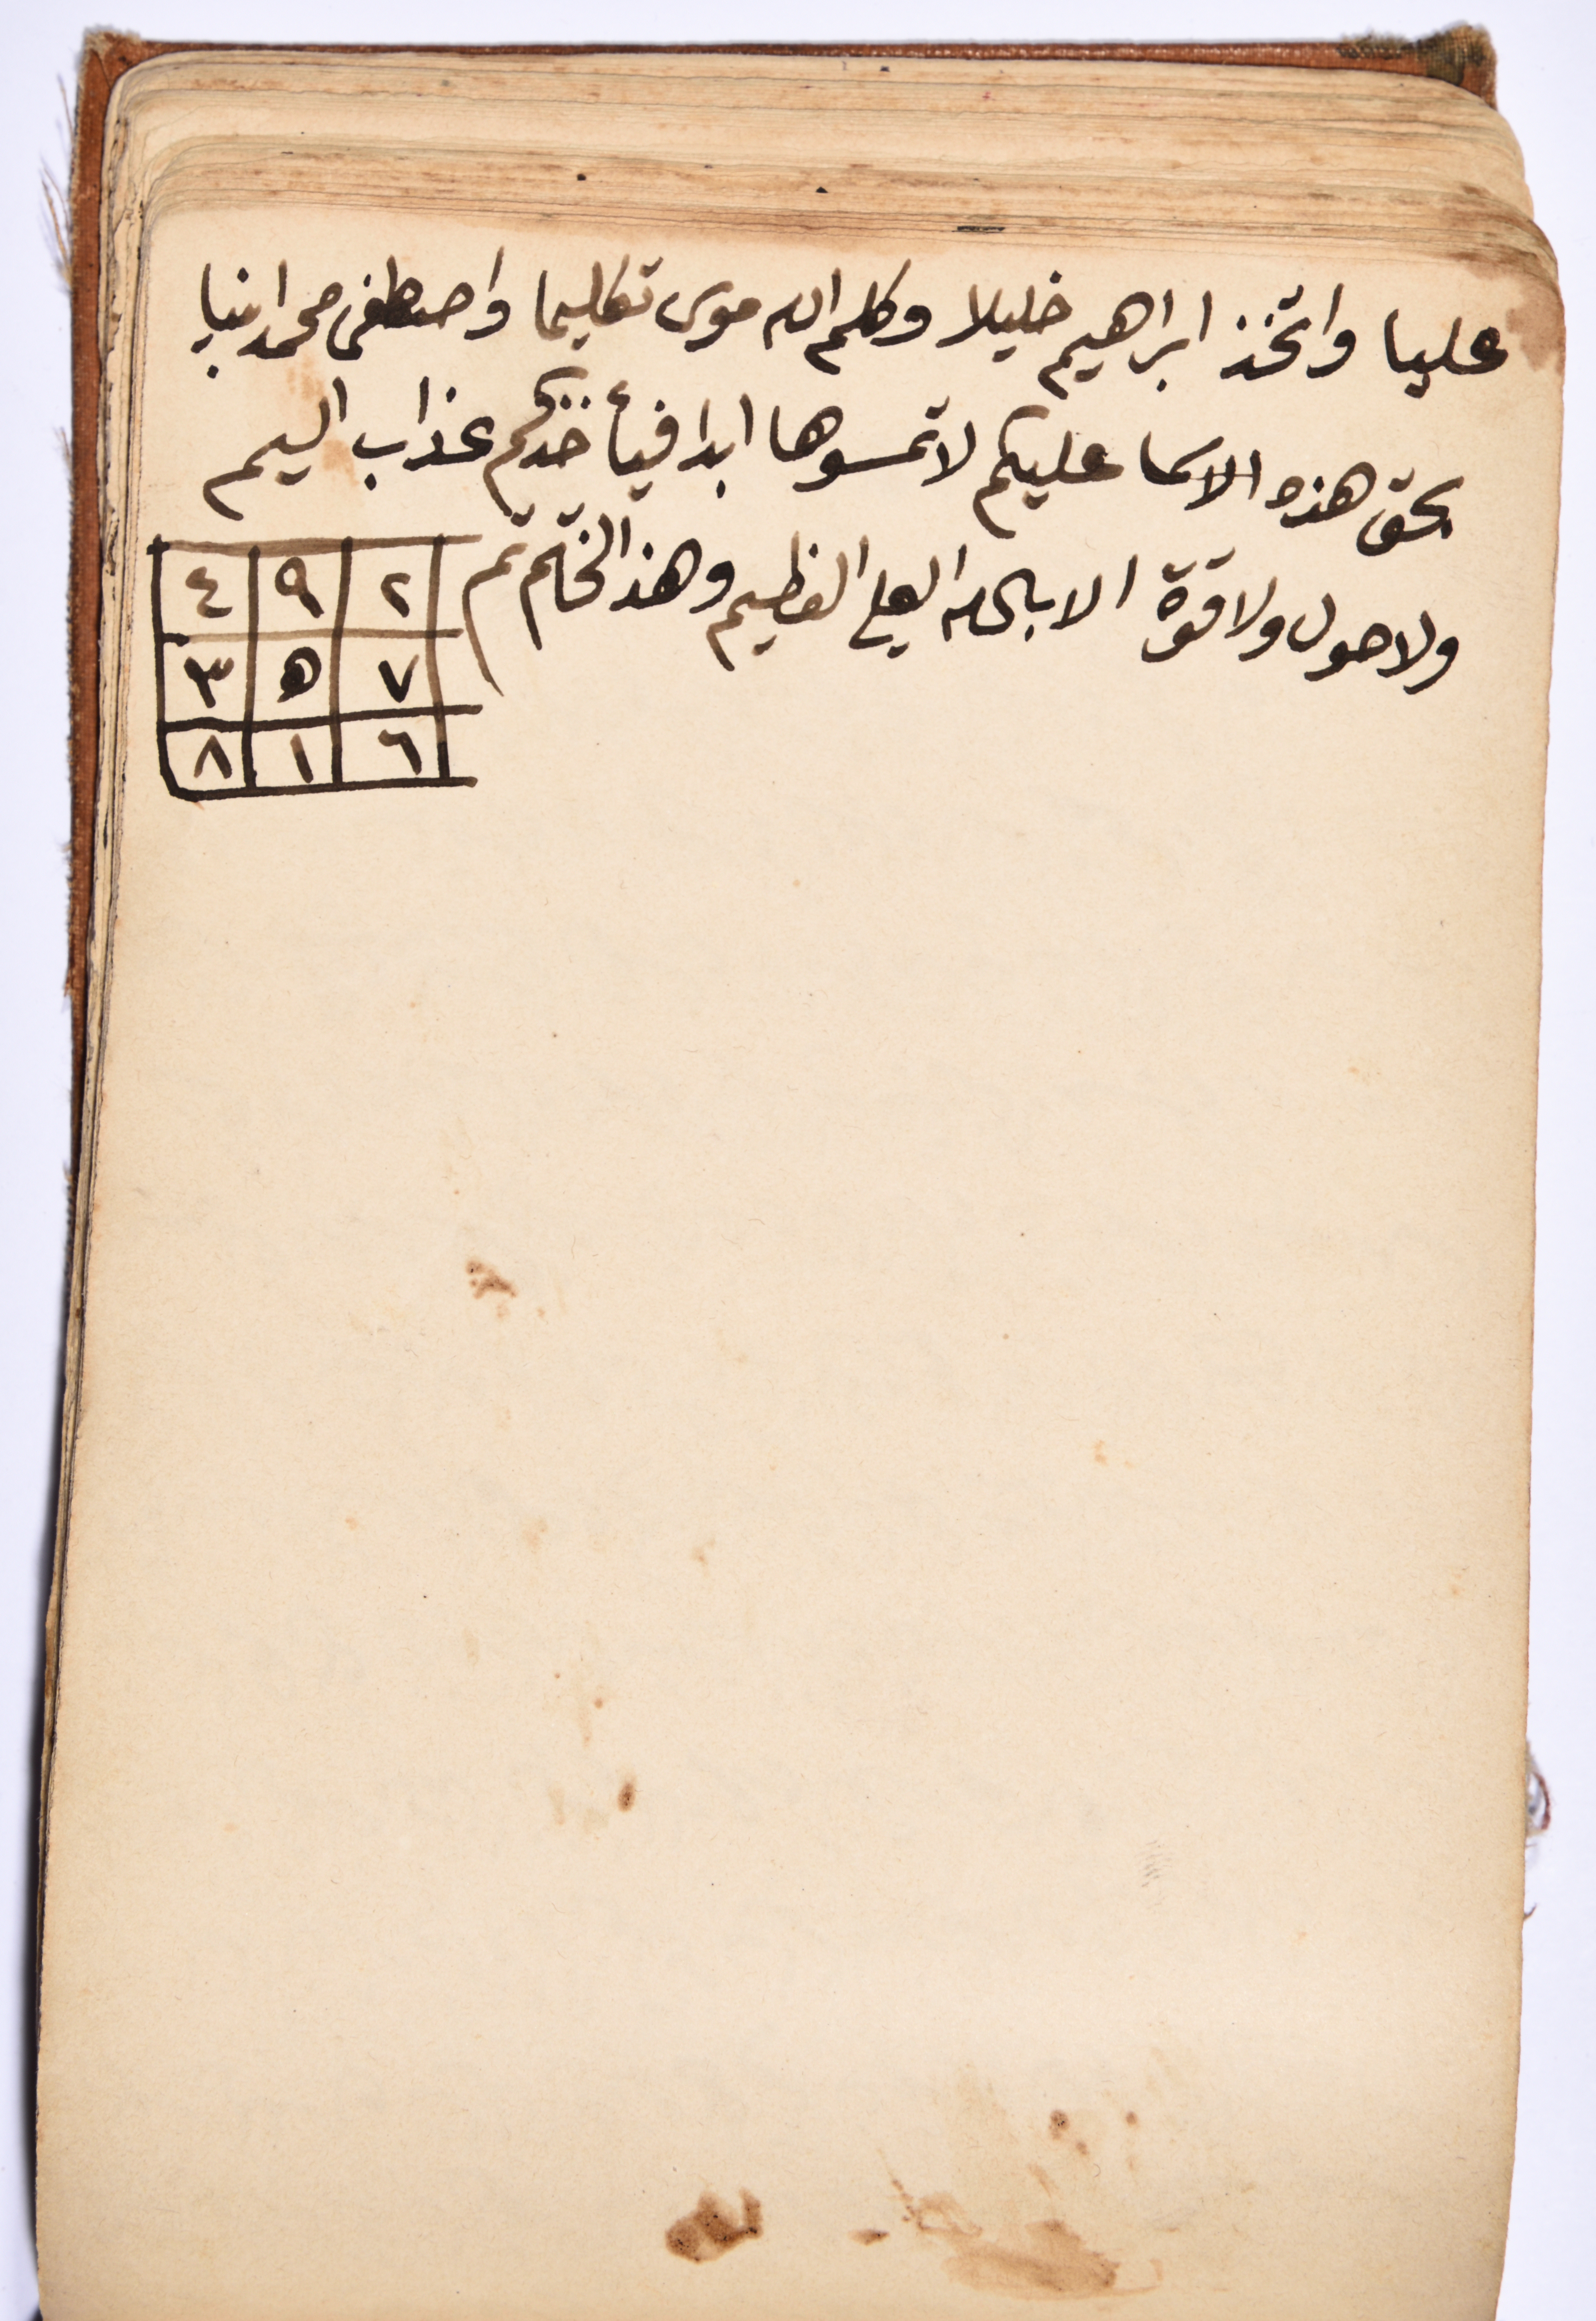 عليا واتخذ ابراهيم خليلا وكلم الله موسى تكليما واصطفى محمدا نبيا
بحق هذه الاسما عليكم لا تمسوها ابدا فيأخذكم عذاب اليم
ولا حول ولا قوة الا بالله العلي العظيم وهذ الخاتم تم
٤ ٩ ٢
٣ ٥ ٧
٨ ١ ٦